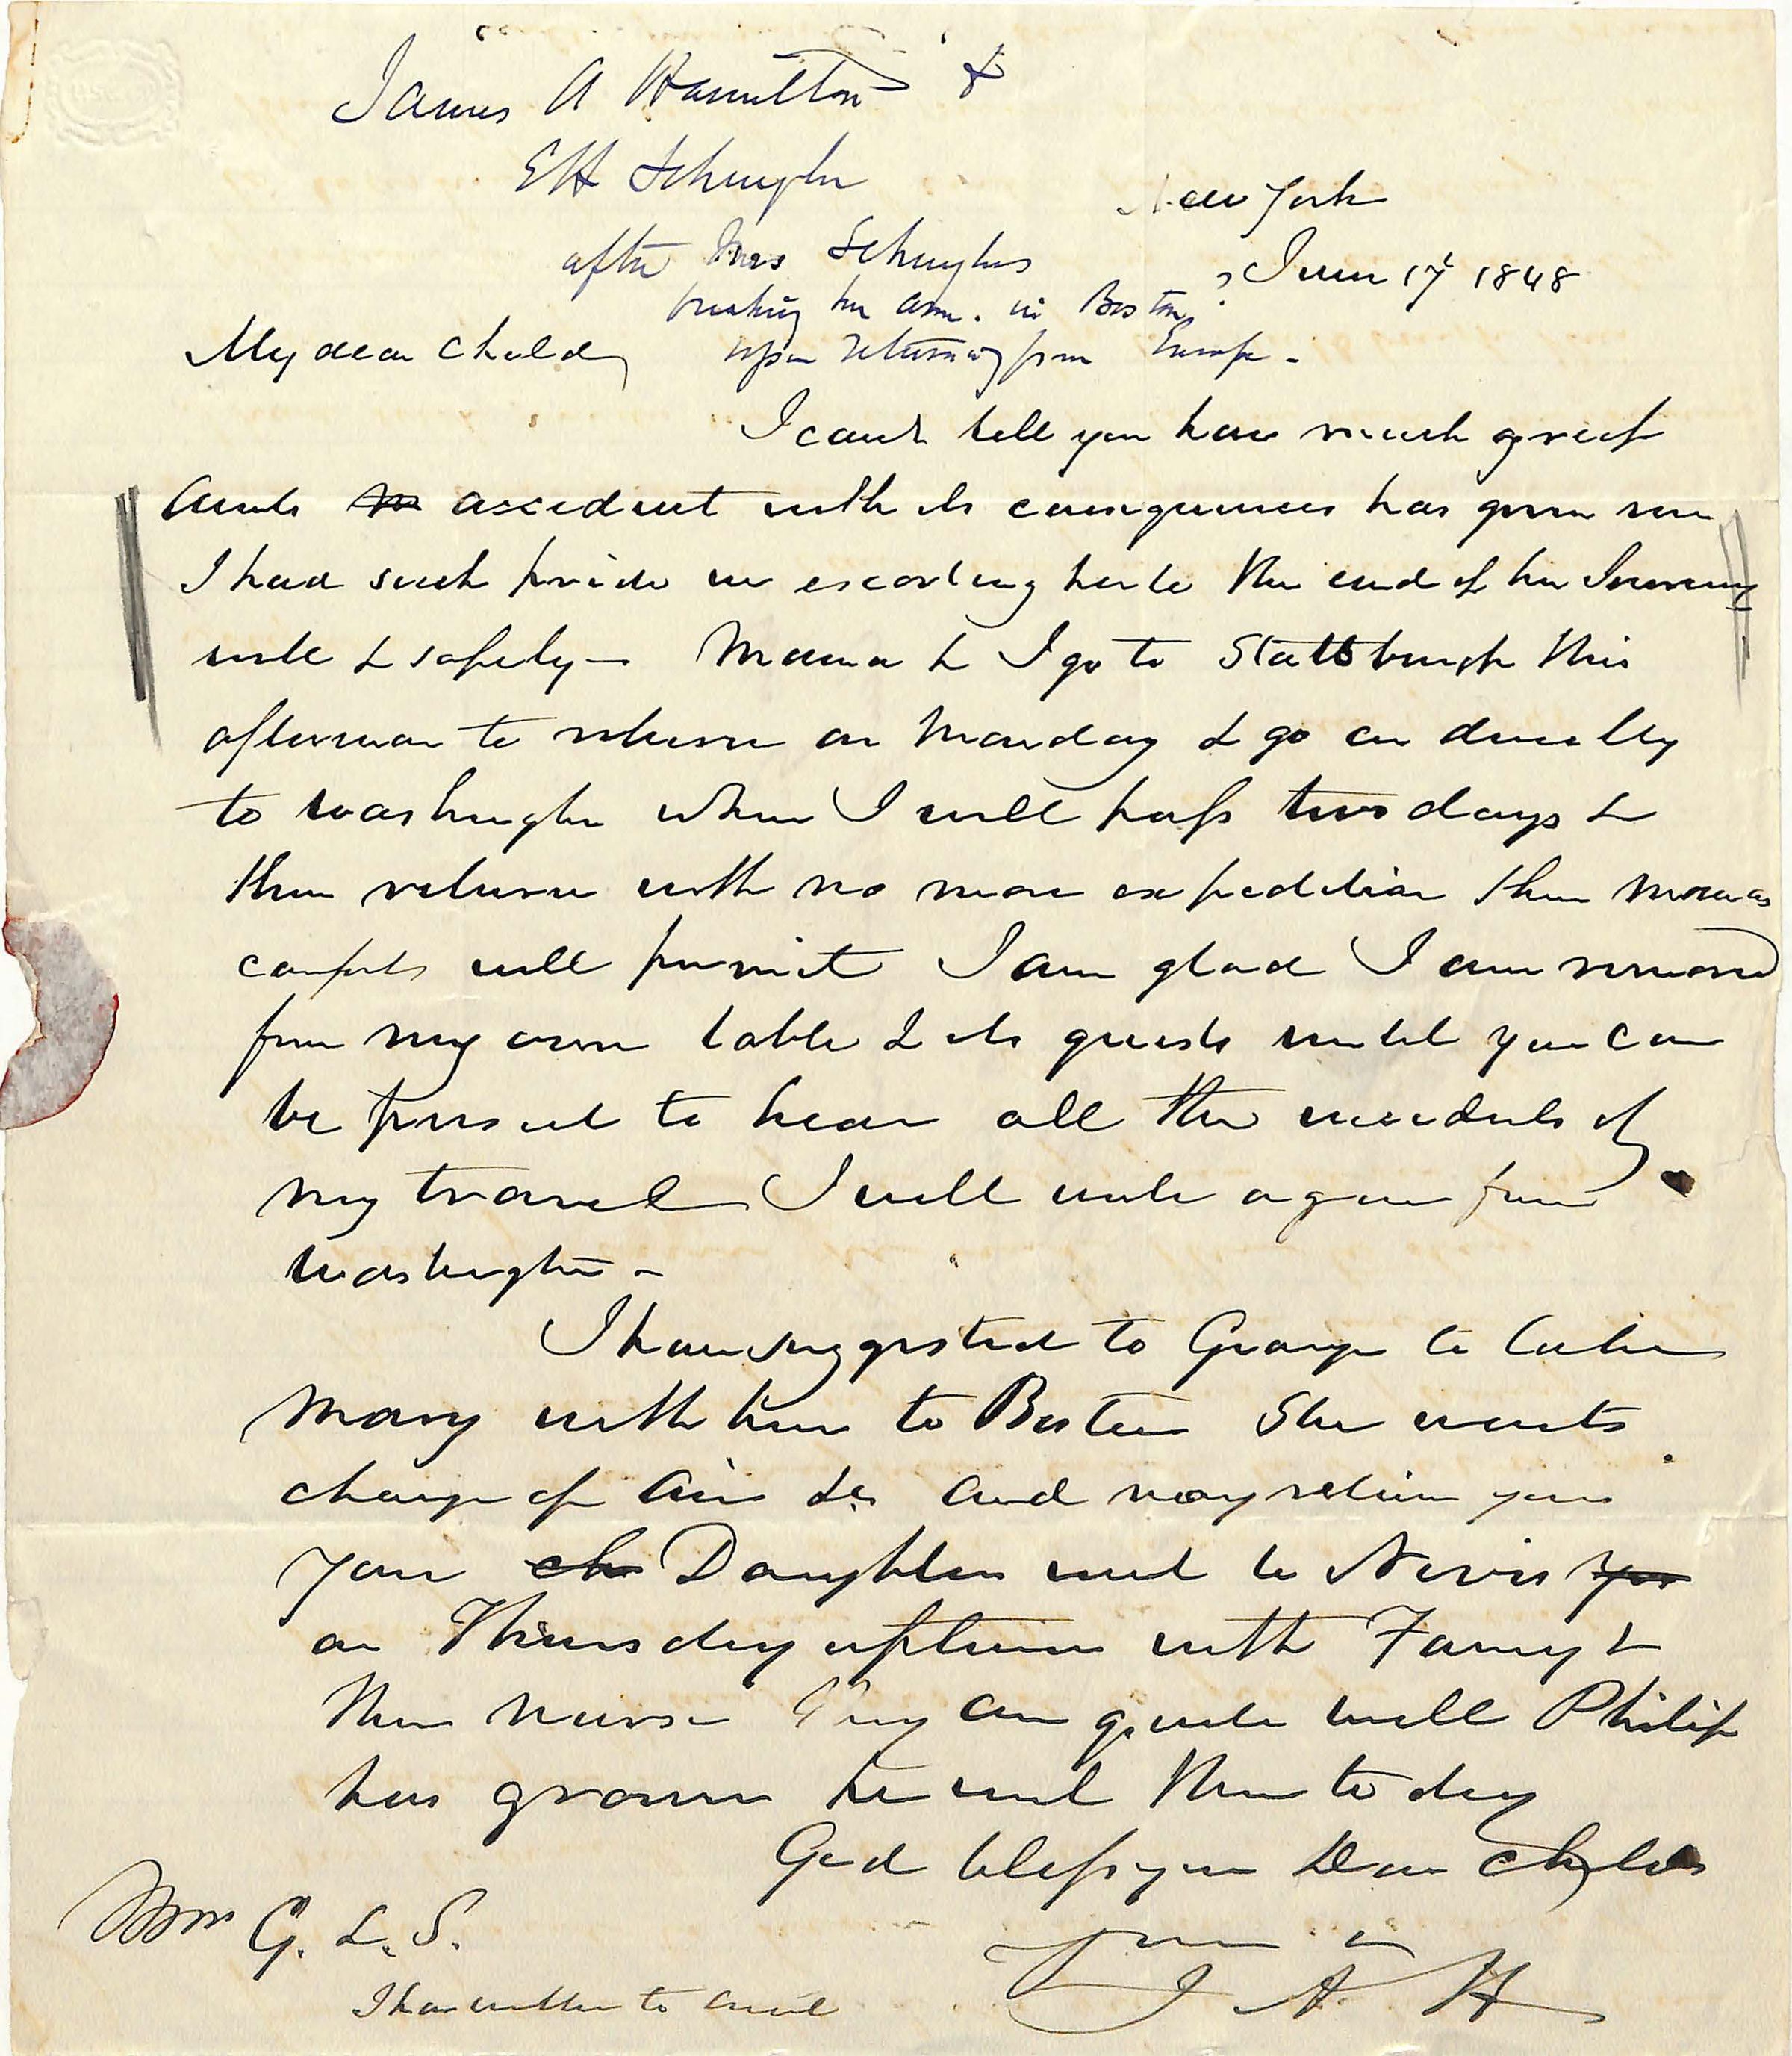 James A Hamilton &
EH Schuyler
New York
after Mrs Schuylers
June 17 1848
breaking her arm. in Boston,
My dear Child
upon returning from Europe -
I cant tell you how much grief
Aunts accident with its consequences has given me
I had such pride in escorting her to the end of her Journey
well & safely - Mama & I go to Statsburgh this
afternoon to return on Monday & go on directly
to Washington where I will pass two days &
then return with no more expedition than Mamas
comforts will permit I am glad I am removed
from my own table & its guests until you can
be present to hear all the incidents of
my travel I will write again from
Washington -
I have suggested to George to take
Mary with him to Boston She wants
change of air &c and may relieve you
Your ch Daughter went to Nevis
on Thursday afternoon with Fanny &
their nurse They are quite well Philip
has grown he went then to day
God bless you Dear Child
Mrs G. L. S.
J A H
I have written to Aunt